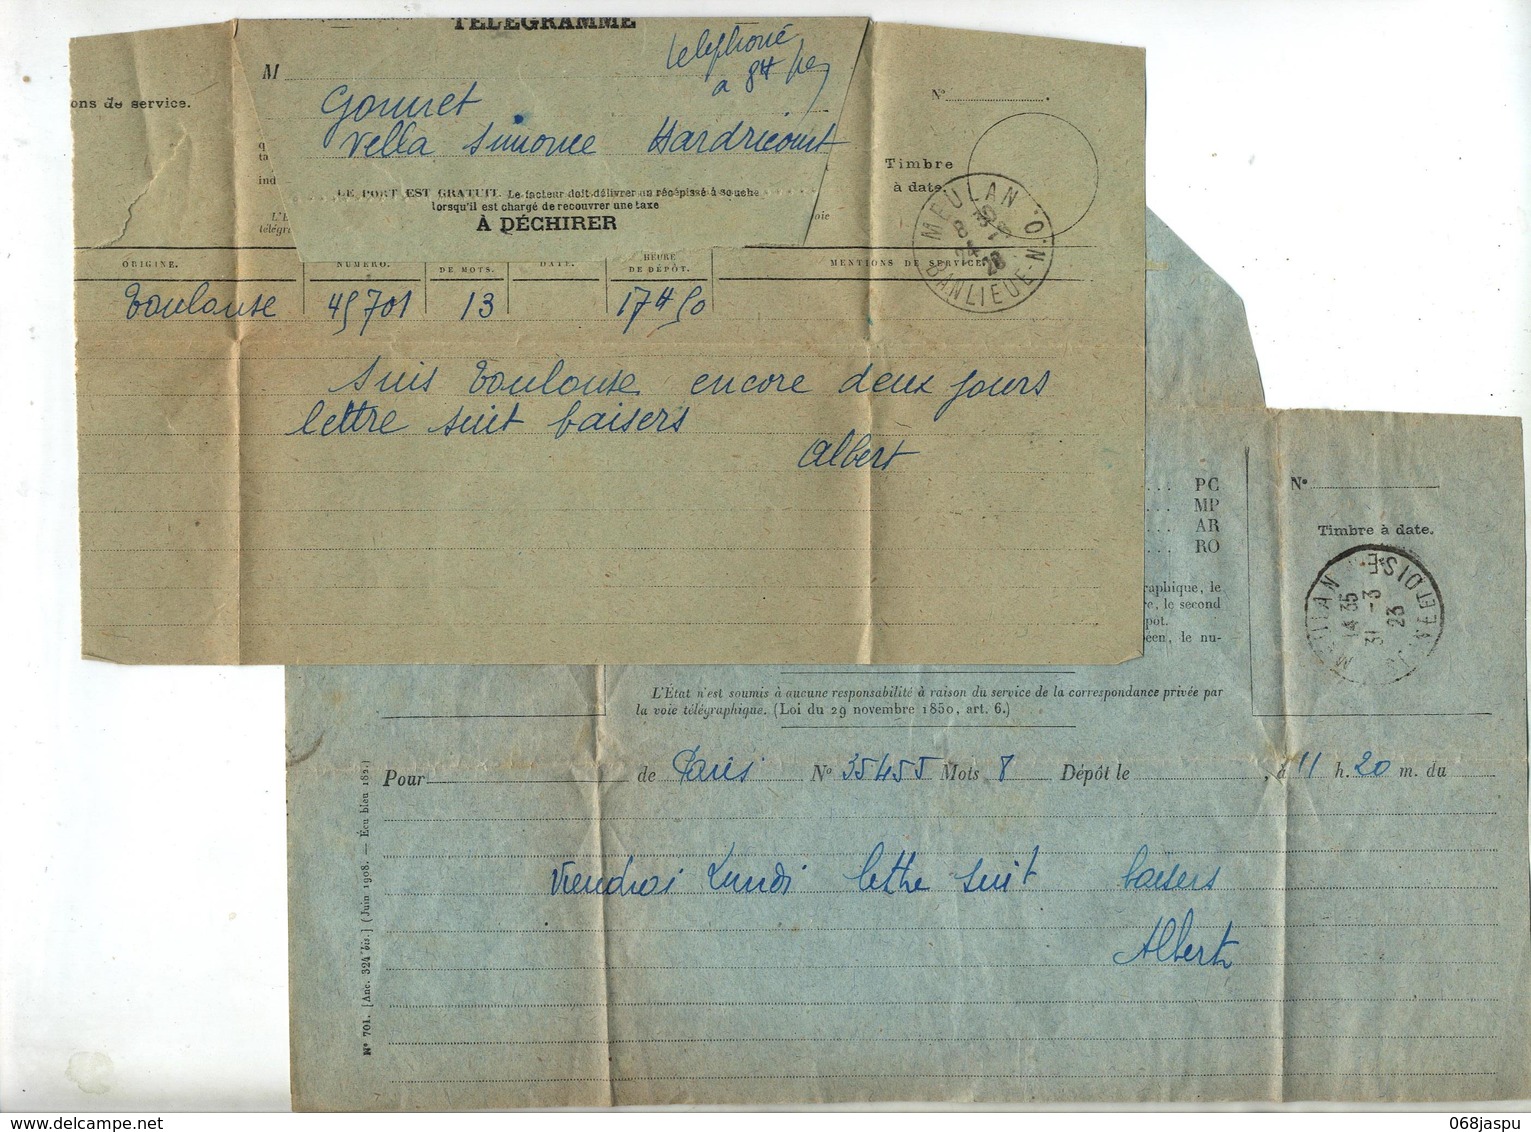 TÉLÉGRAMME
telephoné
a 8H
M
Gourret
Villa Simone Hardricourt
ons de service.
N°
Timbre
à date
LE PORT EST GRATUIT. Le facteur doit délivrer un récépissé à souche
lorsqu'il est chargé de recouvrer une taxe
À DÉCHIRER
q
ta
ind
L'E
télégra
voie
MEULAN
BANLIEUE-N.O.
ORIGINE.
NUMÉRO.
DE MOTS.
DATE.
HEURE
DE DÉPÔT.
MENTIONS DE SERVICE.
Toulouse 45701 13 17H50
Suis Toulouse encore deux jours
lettre suit baisers
Albert
PC
MP
AR
RO
N°
Timbre à date.
MEULAN
14 35
31 -3
23
SEINE ET OISE
raphique, le
re, le second
pôt.
éen, le nu-
L'État n'est soumis à aucune responsabilité à raison du service de la correspondance privée par
la voie télégraphique. (Loi du 29 novembre 1850, art. 6.)
Pour de Paris N° 35455 Mots 8 Dépôt le , à 11 h. 20 m. du
Viendrai Lundi lettre suit baisers
Albert
N° 701. [Anc. 324 bis.] (Juin 1908. — Écu bleu
068jaspu